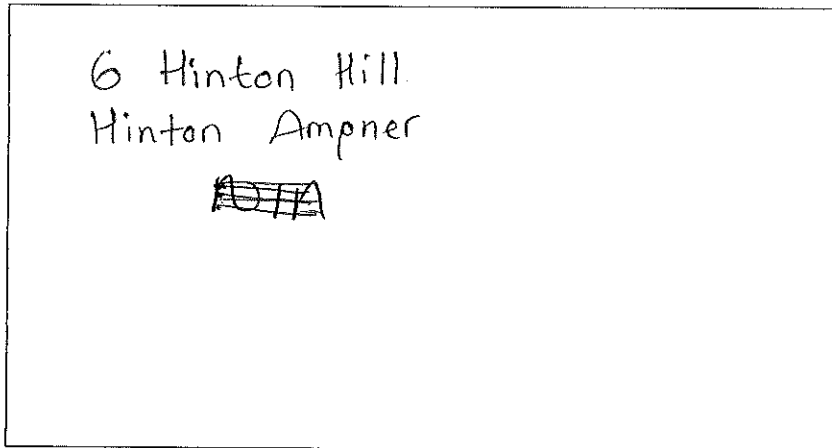 6 Hinton Hill
Hinton Ampner